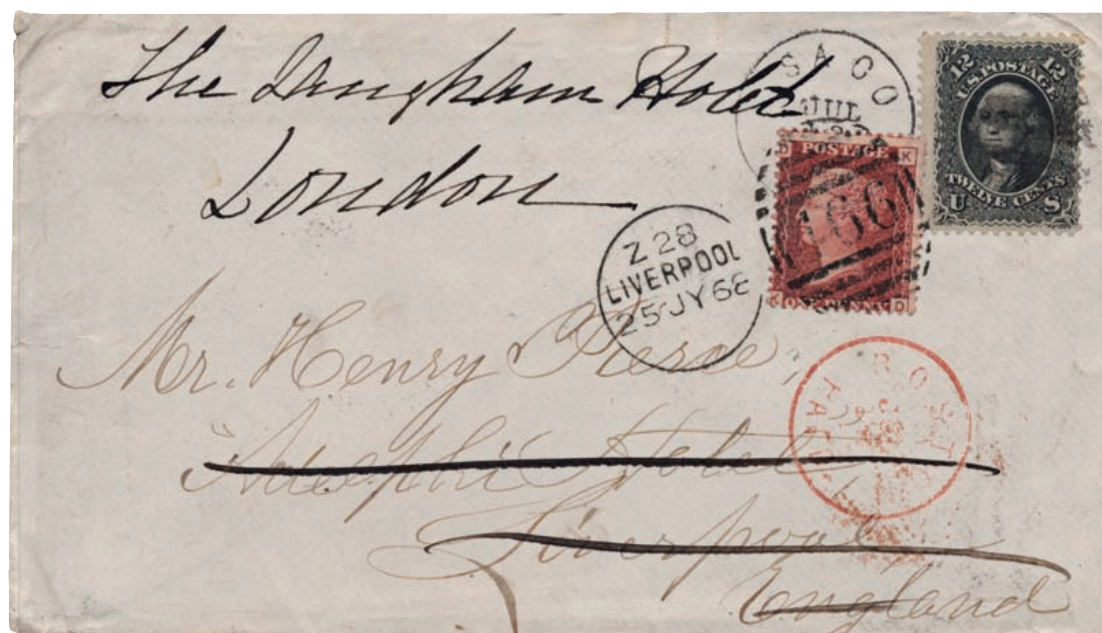 The Langham Hotel
London
SACO
JUL
12
U.S. POSTAGE
12
TWELVE CENTS
U S
D POSTAGE K
K ONE PENNY D
466
Z 28
LIVERPOOL
25 JY 68
Mr. Henry Pierce,
"Adelphi Hotel"
Liverpool
England
BOSTON
PAID